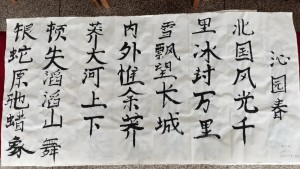 沁园春
北国风光千
里冰封万里
雪飘望长城
内外惟余莽
莽大河上下
顿失滔滔山舞
银蛇原驰蜡象